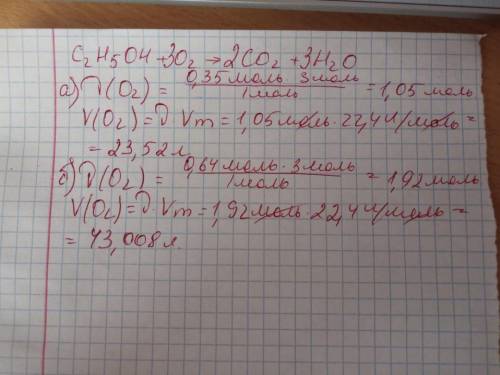 C₂H₅OH + 3O₂ → 2CO₂ + 3H₂O
а) ν(O₂) = 0,35 моль · 3 моль / 1 моль = 1,05 моль
V(O₂) = ν · Vm = 1,05 моль · 22,4 л/моль =
= 23,52 л
б) ν(O₂) = 0,64 моль · 3 моль / 1 моль = 1,92 моль
V(O₂) = ν · Vm = 1,92 моль · 22,4 л/моль =
= 43,008 л.